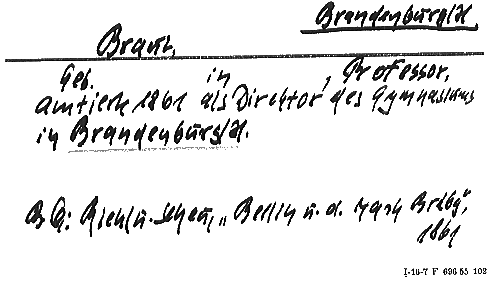 Brandenburg/H.
Braut,
Geb. in , Professor,
amtierte 1861 als Direktor des Gymnasiums
in Brandenburg/H.
BQ: Riehl u. Scheu, „Berlin u. d. Mark Brdbg",
1861
I-16-7 F 696 55 102